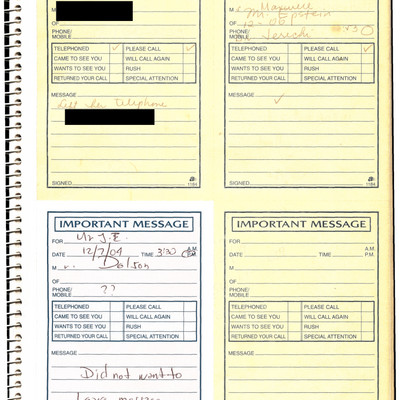 M
OF
PHONE/
MOBILE
TELEPHONED ✓ PLEASE CALL ✓
CAME TO SEE YOU WILL CALL AGAIN
WANTS TO SEE YOU RUSH
RETURNED YOUR CALL SPECIAL ATTENTION
MESSAGE
telephone
SIGNED 1184
Maxwell
M. Epstein
OF
PHONE/
MOBILE
TELEPHONED PLEASE CALL ✓
CAME TO SEE YOU WILL CALL AGAIN
WANTS TO SEE YOU RUSH
RETURNED YOUR CALL SPECIAL ATTENTION
MESSAGE ✓
SIGNED 1184
IMPORTANT MESSAGE
FOR Mr J.E.
DATE 12/7/04 TIME 3/30 A.M. P.M.
M r.
OF
PHONE/
MOBILE ??
TELEPHONED PLEASE CALL
CAME TO SEE YOU WILL CALL AGAIN
WANTS TO SEE YOU RUSH
RETURNED YOUR CALL SPECIAL ATTENTION
MESSAGE
Did not want to
IMPORTANT MESSAGE
FOR
DATE TIME A.M. P.M.
M
OF
PHONE/
MOBILE
TELEPHONED PLEASE CALL
CAME TO SEE YOU WILL CALL AGAIN
WANTS TO SEE YOU RUSH
RETURNED YOUR CALL SPECIAL ATTENTION
MESSAGE